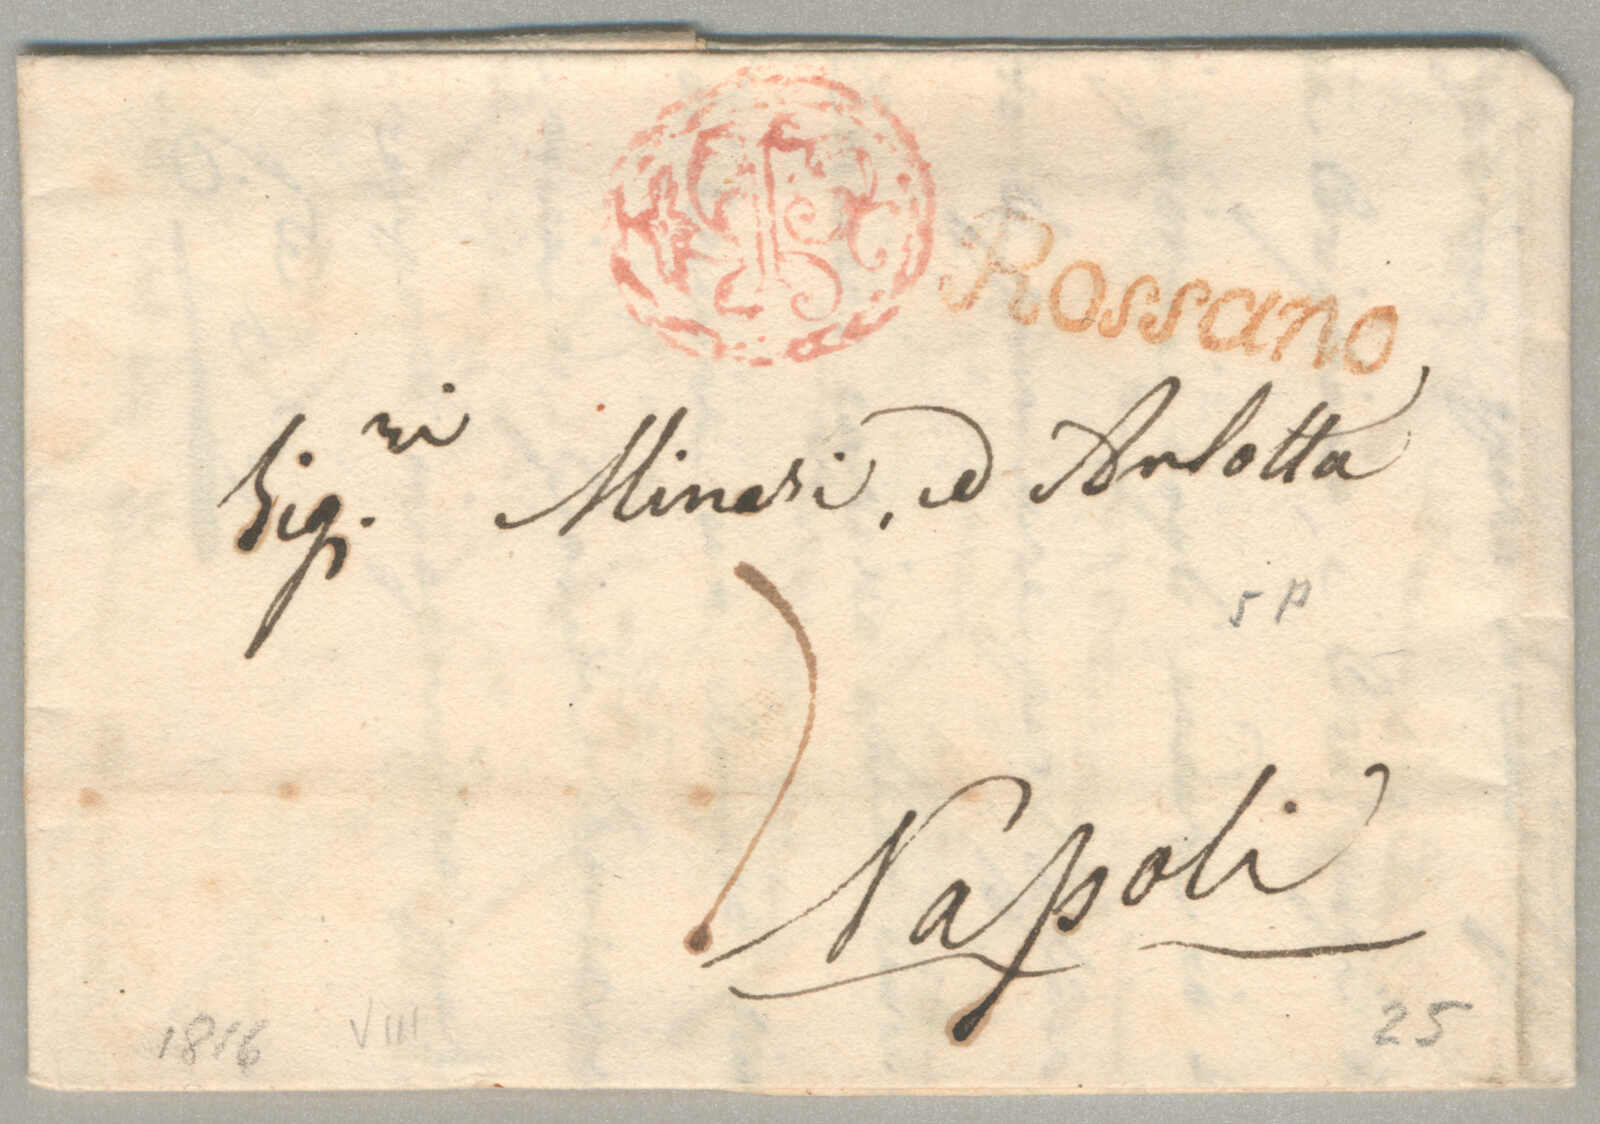 Rossano
Sig.ri Minasi, ed Arlotta
5 P
Napoli
1816 VIII
25